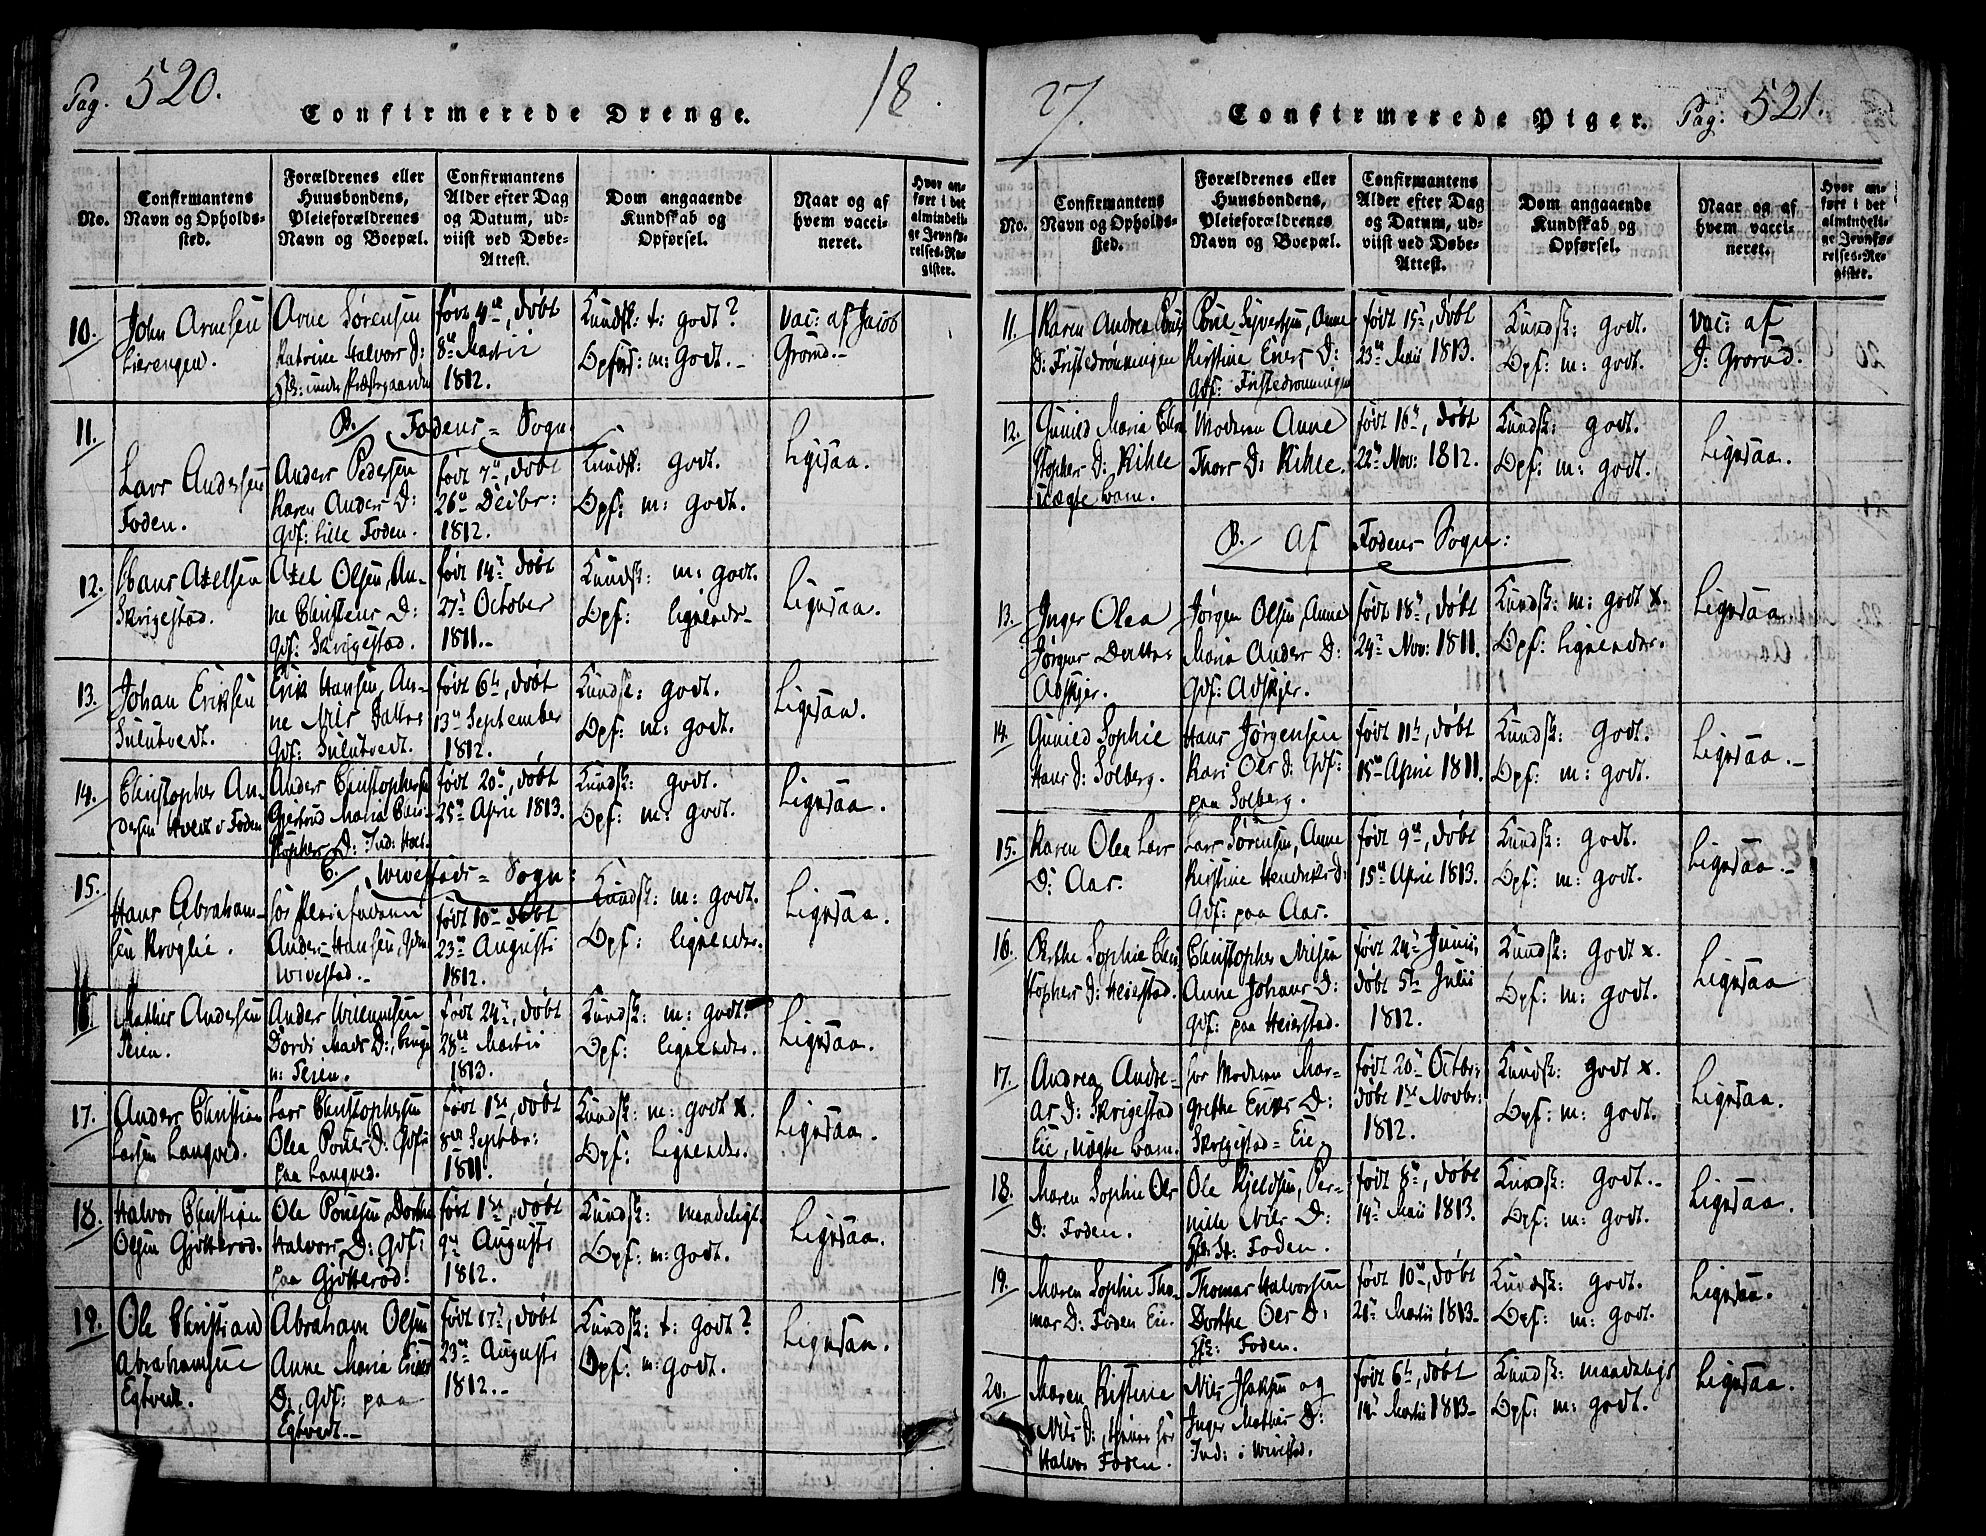 Pag. 520.
Confirmerede Drenge.
18.
No.
Confirmantens
Navn og Opholds-
sted.
Forældrenes eller
Huusbondens,
Pleieforældrenes
Navn og Boepæl.
Confirmantens
Alder efter Dag
og Datum, ud-
viist ved Døbe-
Attest.
Dom angaaende
Kundskab og
Opførsel.
Naar og af
hvem vacci-
neret.
Hvor an-
ført i det
almindeli-
ge Jevnfø-
relses-Re-
gister.
10.
John Arnesen
Lierengen.
Arne Sørensen
Katrine Halvors D:
Hfs: under Præstegaarden
født 4de, døbt
8de Martii
1812.
Kundsk: t: godt?
Opførs: m: Godt.-
Vac: af Jacob
Grorud.-
B. Fodens-Sogn.
11.
Lars Andersen
Foden.
Anders Pedersen
Karen Anders D:
Gdf: Lille Foden.
født 7de, døbt
26de Decbr:
1812.
Kundsk: godt.
Opf: m: godt.
Ligesaa.
12.
Hans Axelsen
Skrigestad.
Axel Olsen, An-
ne Christens D:
Gdf: Skrigestad.
født 14de, døbt
27de October
1811.-
Kundsk: m: godt.
Opf: ligeledes-
Ligesaa.
13.
Johan Eriksen
Sulutvedt.
Erik Hansen, An-
ne Nils Datter
Gdf: Sulutvedt.
født 6te, døbt
13de September
1812.
Kundsk: godt.
Opf: m: godt.
Ligesaa.
14.
Christopher An-
dersen Foden
Anders Christophersen
Gjertrud Maria Chri-
stophers D: Ind:
født 20de, døbt
25de April 1813.
Kundsk: godt.
Opf: m: godt.
Ligesaa.
C. Wivestads-Sogn:
15.
Hans Abraham-
sen Kroglie.
hos Pleiefaderen
Anders Hansen,
Wivestad.-
født 10de døbt
23de Augusti
1812.
Kundsk: m: godt.
Opf: ligeledes.
Ligesaa.
16.
Mathis Andersen
Teien.
Anders Willumsen
Dordi Mads D:,
u: Teien.
født 24de, døbt
28de Martii
1813.
Kundsk: m: godt.
Opf: ligeledes.
Ligesaa.
17.
Anders Christian
Larsen Langved.
Lars Christophersen
Olea Pouls D: Gdf:
paa Langved.
født 1ste, døbt
8de Septbr:
1811.
Kundsk: m: godt x.
Opf: Ligeledes.
Ligesaa.
18.
Halvor Christian
Olsen Gjötterod.
Ole Poulsen, Dorthe
Halvors D: Gdf:
paa Gjötterod.
født 1ste, døbt
9de Augusti
1812.
Kundsk: maadeligt.
Opf: m: godt.
Ligesaa.
19.
Ole Christian
Abrahamsen
Egtvedt.
Abraham Olsen
Anne Maria Eriks
D:, Gdf: paa
Egtvedt.-
født 17de, døbt
23de Augusti
1812.-
Kundsk: t: godt?
Opf: m: godt.
Ligesaa.
27.
Confirmerede Piger.
Pag: 521.
No.
Confirmantens
Navn og Opholds-
sted.
Forældrenes eller
Huusbondens,
Pleieforældrenes
Navn og Boepæl.
Confirmantens
Alder efter Dag
og Datum, ud-
viist ved Døbe-
Attest.
Dom angaaende
Kundskab og
Opførsel.
Naar og af
hvem vacci-
neret.
Hvor an-
ført i det
almindeli-
ge Jevnfø-
relses-Re-
gister.
11.
Karen Andrea Pouls
D: Fristedrønningen
Poul Sivertsen, Anne
Kirstine Eners D:
Gdf: Fristedrønningen
født 15de, døbt
23de Maii 1813.
Kundsk: godt.
Opf: m: godt.
Vac: af
J: Grorud.
12.
Gunild Maria Chri-
stophers D: Kihle
uægte barn.
Moderen Anne
Thors D: Kihle.
født 16de, døbt
22de Nov: 1812.
Kundsk: godt.
Opf: m: godt.
Ligesaa.
B. Af Fodens Sogn:
13.
Inger Olea
Jørgens Datter
Adskjer.
Jørgen Olsen, Anne
Maria Anders D:
Gdf: Adskjer.
født 18de, døbt
24de Nov: 1811.
Kundsk: m: godt x.
Opf: Ligeledes.
Ligesaa.
14.
Gunild Sophie
Hans D: Solberg.
Hans Jørgensen
Kari Ols D: Gdf:
paa Solberg.
født 11te, døbt
15de April 1811.
Kundsk: Godt.
Opf: m: godt.
Ligesaa.-
15.
Karen Olea Lars
D: Aas.
Lars Sørensen, Anne
Kirstine Hendriks D:
Gdf: paa Aas.
født 9de, døbt
15de April 1813.
Kundsk: godt.
Opf: m: godt.
Ligesaa.-
16.
Berthe Sophie Chri-
stophers D: Heiestad.
Christopher Nilsen
Anne Johans D:
Gdf: paa Heiestad.
født 24de Junii,
døbt 5te Julii
1812.
Kundsk: Godt x.
Opf: m: godt.
Ligesaa
17.
Andrea Andre-
as D: Skrigestad
Eie, uægte barn.
hos Moderen Mar-
grethe Eriks D:
Skrigestad-Eie,
født 20de Octbr:
døbt 1ste Novbr:
1812.
Kundsk: Godt x.
Opf: m: godt.
Ligesaa.
18.
Maren Sophie Ols
D: Foden.
Ole Kjeldsen, Per-
nille Nils D:
Foden.
født 8de, døbt
14de Maii 1813.
Kundsk: Godt.-
Opf: m: godt.
Ligesaa.
19.
Maren Sophie Tho-
mas D: Foden Eie.
Thomas Halvorsen
Dorthe Ols D:
Hfs: Foden.
født 10de, døbt
28de Martii 1813.-
Kundsk: Godt.
Opf: m: godt.
Ligesaa.
20.
Maren Kistine
Nils D:, tiener hos
Halvor Foden.
Nils Isaksen og
Inger Mathis D:
Ind: i Wivestad.
født 6te, døbt
14de Martii 1813.-
Kundsk: maadeligt
Opf: m: godt.
Ligesaa.